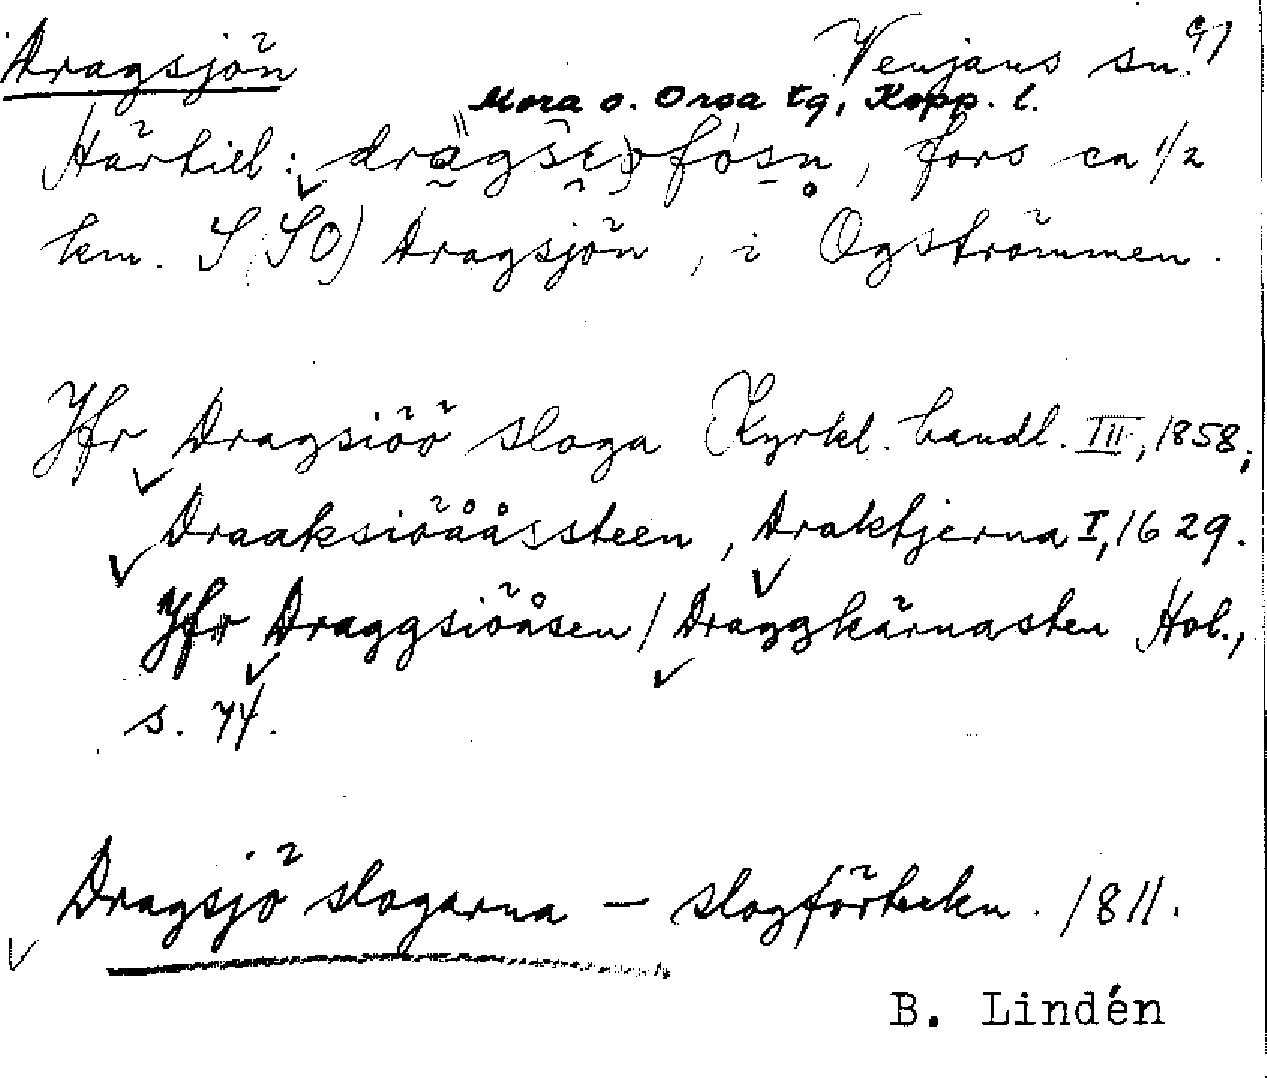 Dragsjön Venjans sn. 91
Mora o. Orsa tg, Kopp. l.
Härtill: , fors ca 1/2
km. S (SO) Dragsjön, i Ogströmmen.
Jfr Dragsiöö sloga Kyrkl. handl. III, 1858;
Draaksiöååssteen, Draktjerna I, 1629.
Jfr Draggsiöåsen / Draggkärnasten Hol.,
s. 74.
Dragsjö slogarna — slogförteckn. 1811.
B. Lindén